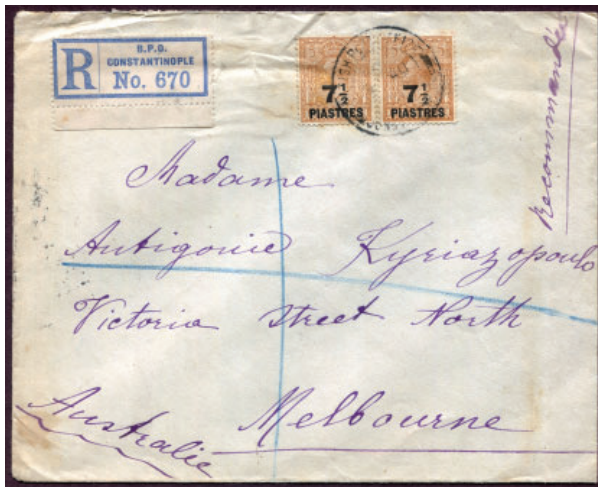 R
B.P.O.
CONSTANTINOPLE
No. 670
7½
PIASTRES
7½
PIASTRES
Recommandée
Madame
Antigonie Kyriazopoulo
Victoria Street North
Melbourne
Australie